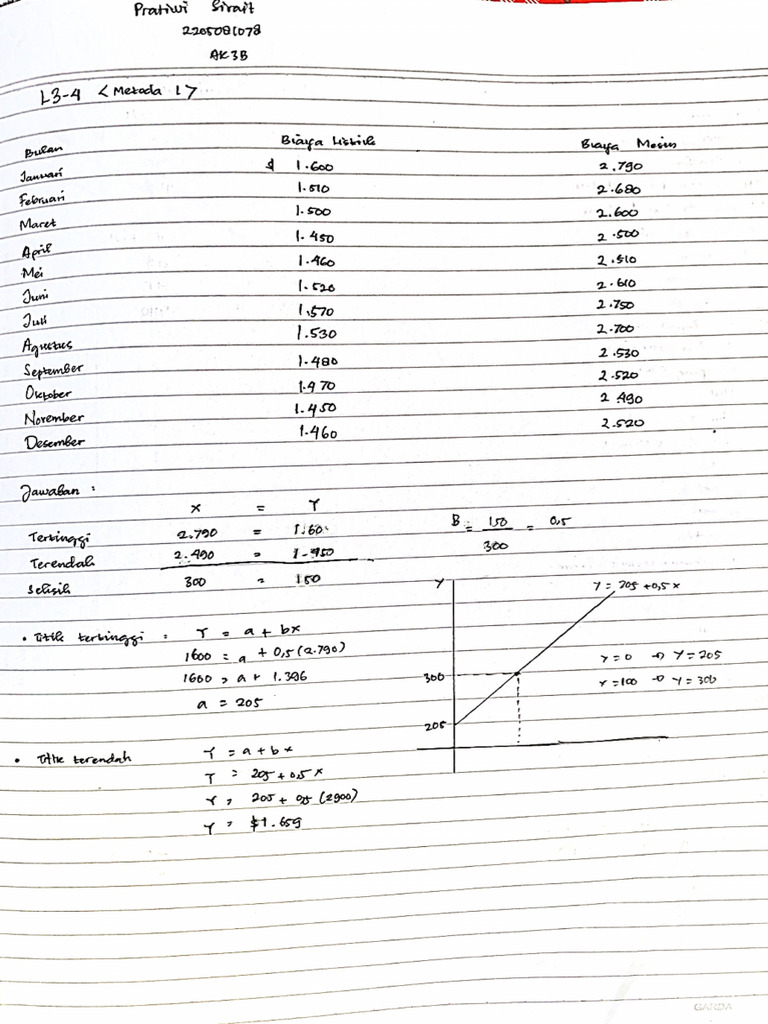 Pratiwi Sirait
2205081078
AK3B
L3-4 < Metoda 1 >
Bulan Biaya Listrik Biaya Mesin
Januari $ 1.600 2.790
Februari 1.510 2.680
Maret 1.500 2.600
April 1.450 2.500
Mei 1.460 2.510
Juni 1.520 2.610
Juli 1.570 2.750
Agustus 1.530 2.700
September 1.480 2.530
Oktober 1.470 2.520
November 1.450 2.490
Desember 1.460 2.520
Jawaban :
X = Y
Tertinggi 2.790 = 1.60
Terendah 2.490 = 1.450
Selisih 300 = 150
B = 150 / 300 = 0,5
• Titik tertinggi = Y = a + bx
1600 = a + 0,5 (2.790)
1600 = a + 1.396
a = 205
Y
Y = 205 + 0,5 x
300
205
Y = 205
Y = 300
• Titik terendah Y = a + b x
Y = 205 + 0,5 x
Y = 205 + 0,5 (2900)
Y = $1.659
GARDA